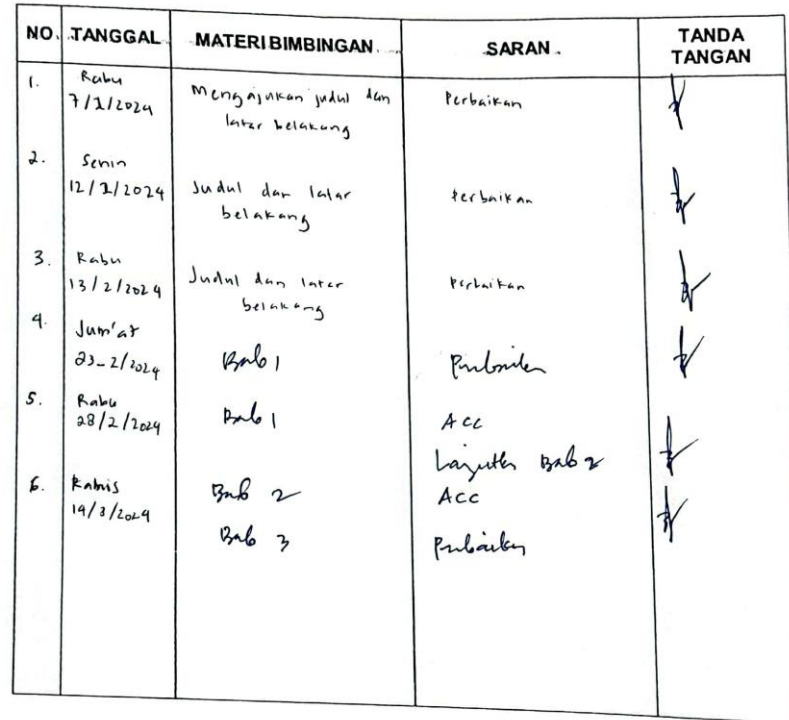 NO. TANGGAL MATERI BIMBINGAN SARAN TANDA TANGAN
1. Rabu
7/2/2024 Mengajukan judul dan Perbaikan
latar belakang
2. Senin
12/2/2024 Judul dan latar Perbaikan
belakang
3. Rabu
13/2/2024 Judul dan latar Perbaikan
belakang
4. Jum'at
23-2/2024 Bab 1 Perbaikan
5. Rabu
28/2/2024 Bab 1 ACC
Lanjutkan Bab 2
6. Kamis Bab 2 ACC
14/3/2024
Bab 3 Perbaikan